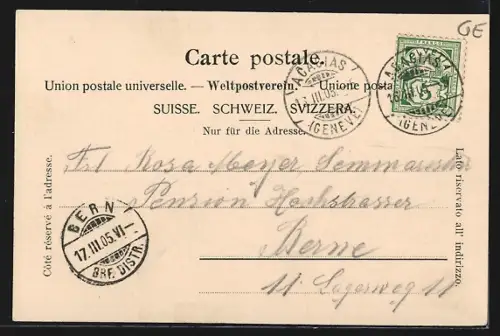 GE
Carte postale.
Union postale universelle. — Weltpostverein. — Unione posta
SUISSE. SCHWEIZ. SVIZZERA.
Nur für die Adresse.
ACACIAS
17.III.05.
(GENÈVE)
ACACIAS
(GENÈVE)
5
Côté réservé à l'adresse.
Lato riservato all' indirizzo.
Frl Rosa Meyer, Seminaristin
Pension Hochstrasser
Berne
11 Lagerweg 11
BERN
17.III.05.VI—
BRF. DISTR.